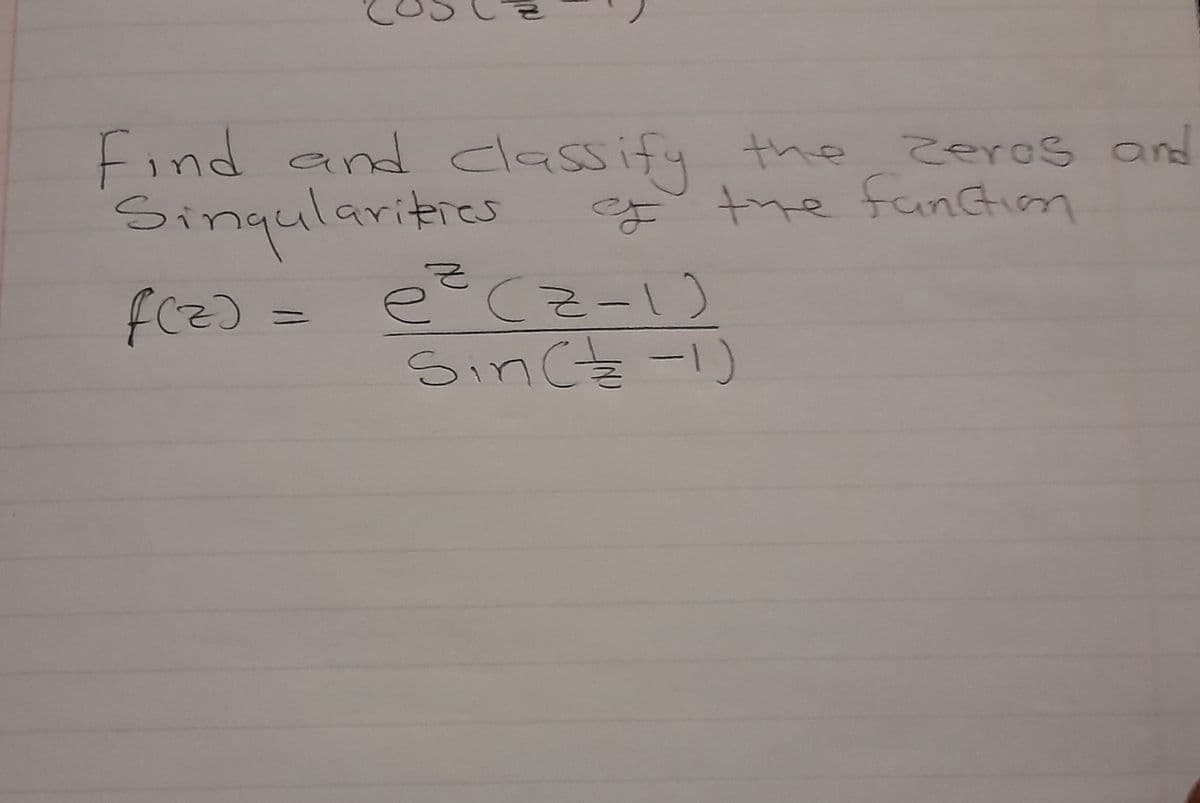 Find and classify the zeros and
Singularities of the function
f(z) = e^z (z-1)
Sin(1/z -1)